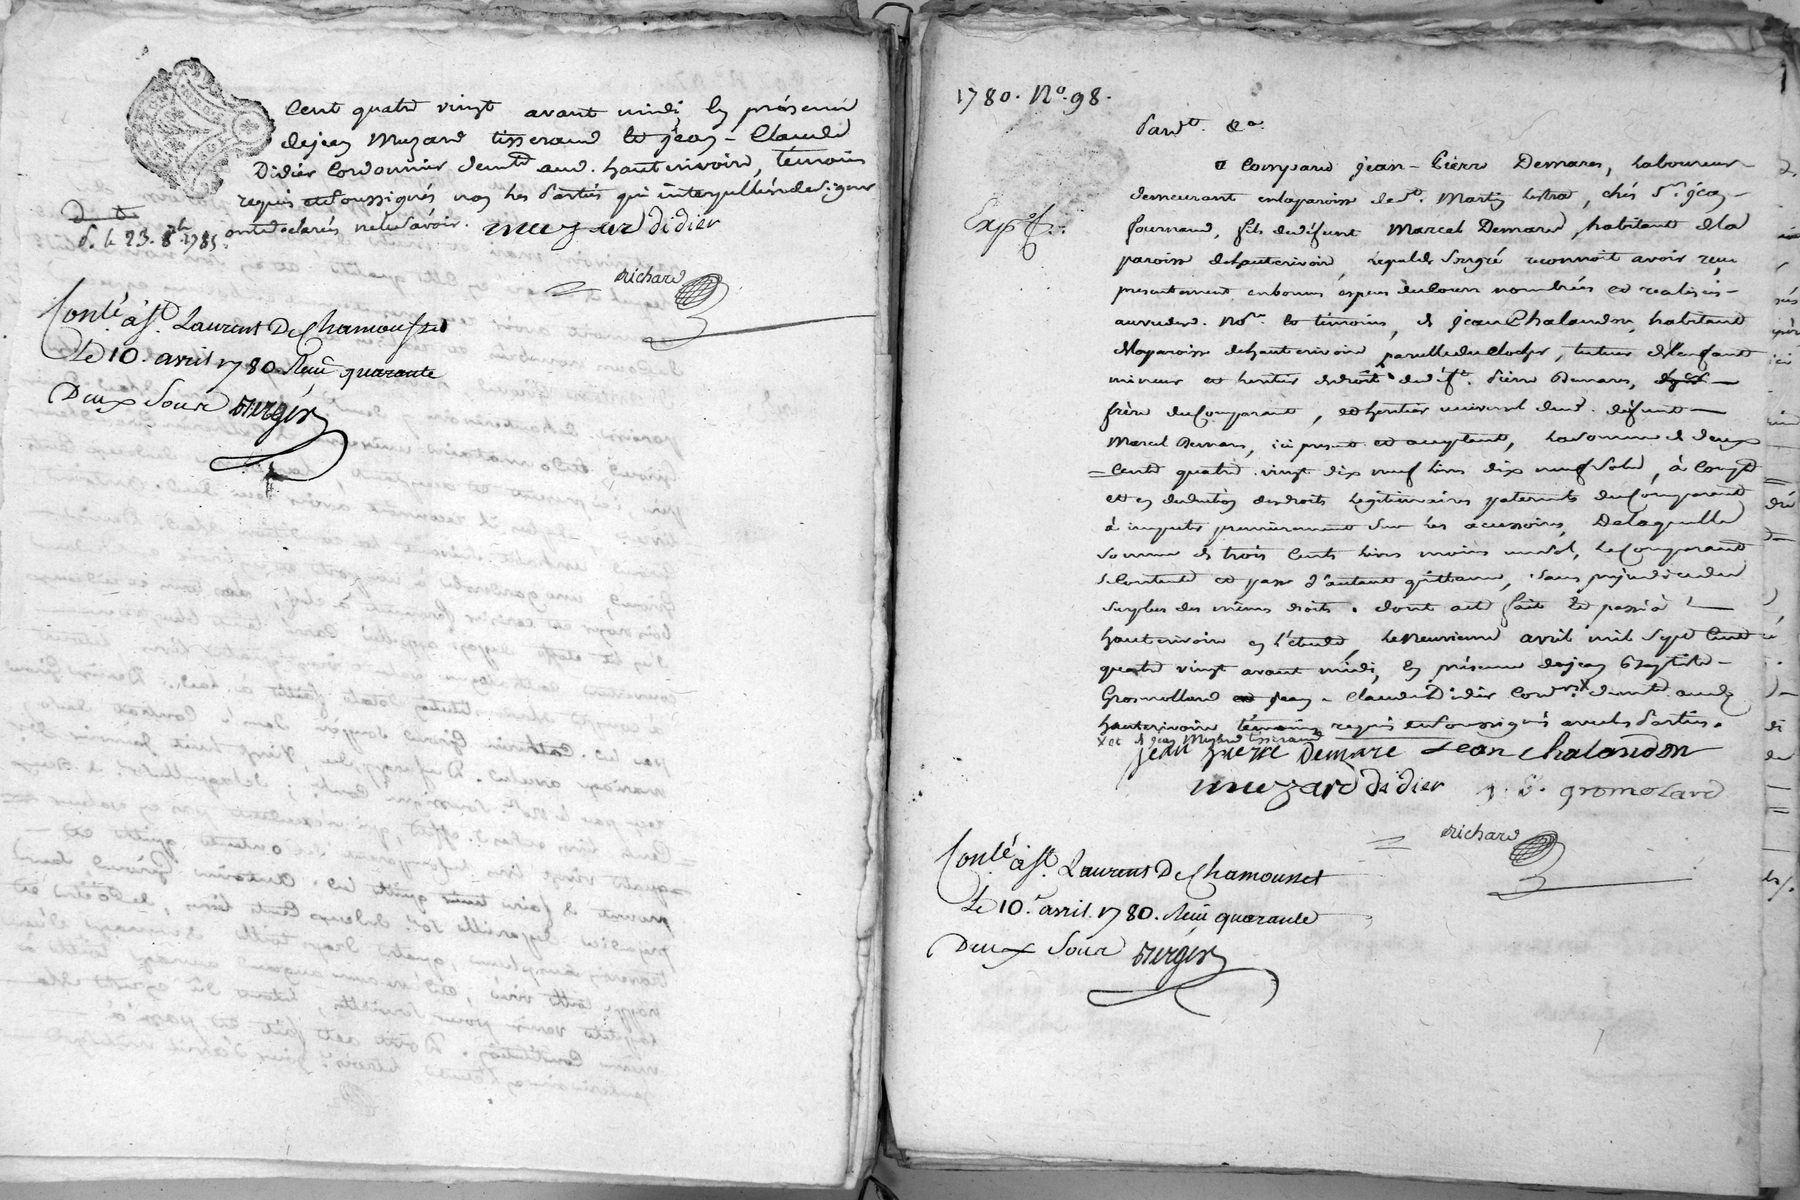 Cent quatre vingt avant midi En présence
de jean Muzard tisserand et jean-Claude
Didier Cordonnier demt aud. hauterivoire, témoins
requis et soussignés non les Parties qui interpellées de signer
ont déclarés ne le savoir. muzard didier
d. le 23. 8bre 1785.
richard
Conlé à St. Laurent De Chamousset
Le 10. avril 1780. Reçu quarante
Deux Sous Vergés
1780. No. 98.
Pardt. &a.
Expé.
a Comparu jean-Pierre Demares, laboureur
demeurant en la paroisse de St. Martin Lestra, chés Sr. jean
fournand, fils de défunt Marcel Demare, habitant de la
paroisse de hauterivoire, Lequel de Son gré reconnoit avoir reçu
présentement en bonnes espèces du Cours nombrées et réalisées
au vu des Nore. et témoins, de jean Chalandon, habitant
de la paroisse de hauterivoire, parcelle du Clocher, tuteur de l'enfant
mineur et héritier de droit dud. ft. Pierre Demares,
frère du Comparant, et héritier universel dud. défunt
Marcel Demares, ici présent et acceptant, La somme de deux
Cents quatre vingt dix neuf livres dix neuf Sols, à Compte
et en déduction des droits Légitimaires paternels du Comparant
à imputer premièrement Sur les accessoires, De laquelle
Somme de trois Cents livres moins un Sol, Le Comparant
Se Contente et passe d'autant quittance, Sans préjudice du
Surplus des mêmes droits. dont acte fait et passé à
hauterivoire en l'étude, Le neuvieme avril mil Sept Cent
quatre vingt avant midi, En présence de jean Baptiste
Gromollard jean-Claude Didier Cordier X demt. aud.
hauterivoire témoins requis et soussignés avec les Parties.
X et de jean Muzard tisserand
jean pierre Demare Jean Chalandon
muzard didier j. B. gromolard
richard
Conlé à St. Laurent De Chamousset
Le 10. avril. 1780. Reçu quarante
Deux Sous Vergés